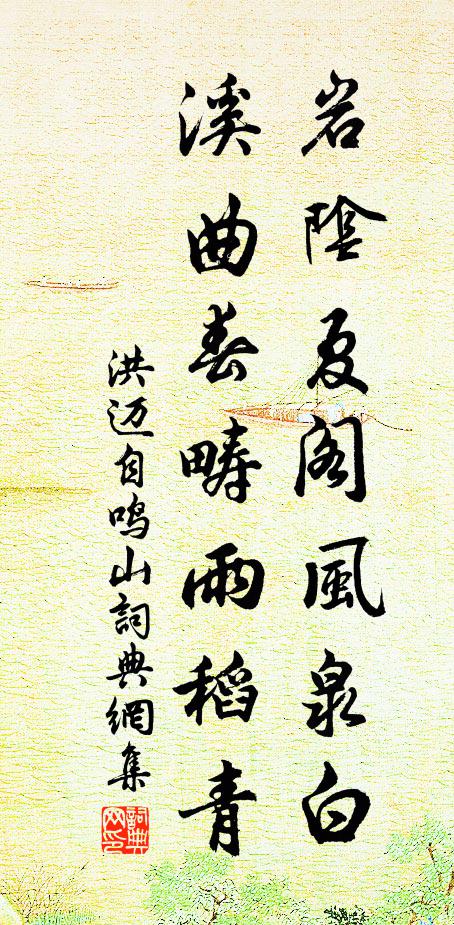 岩陰夏閣風泉白
溪曲春疇雨稻青
洪迈自鸣山詞典網集
詞典網印